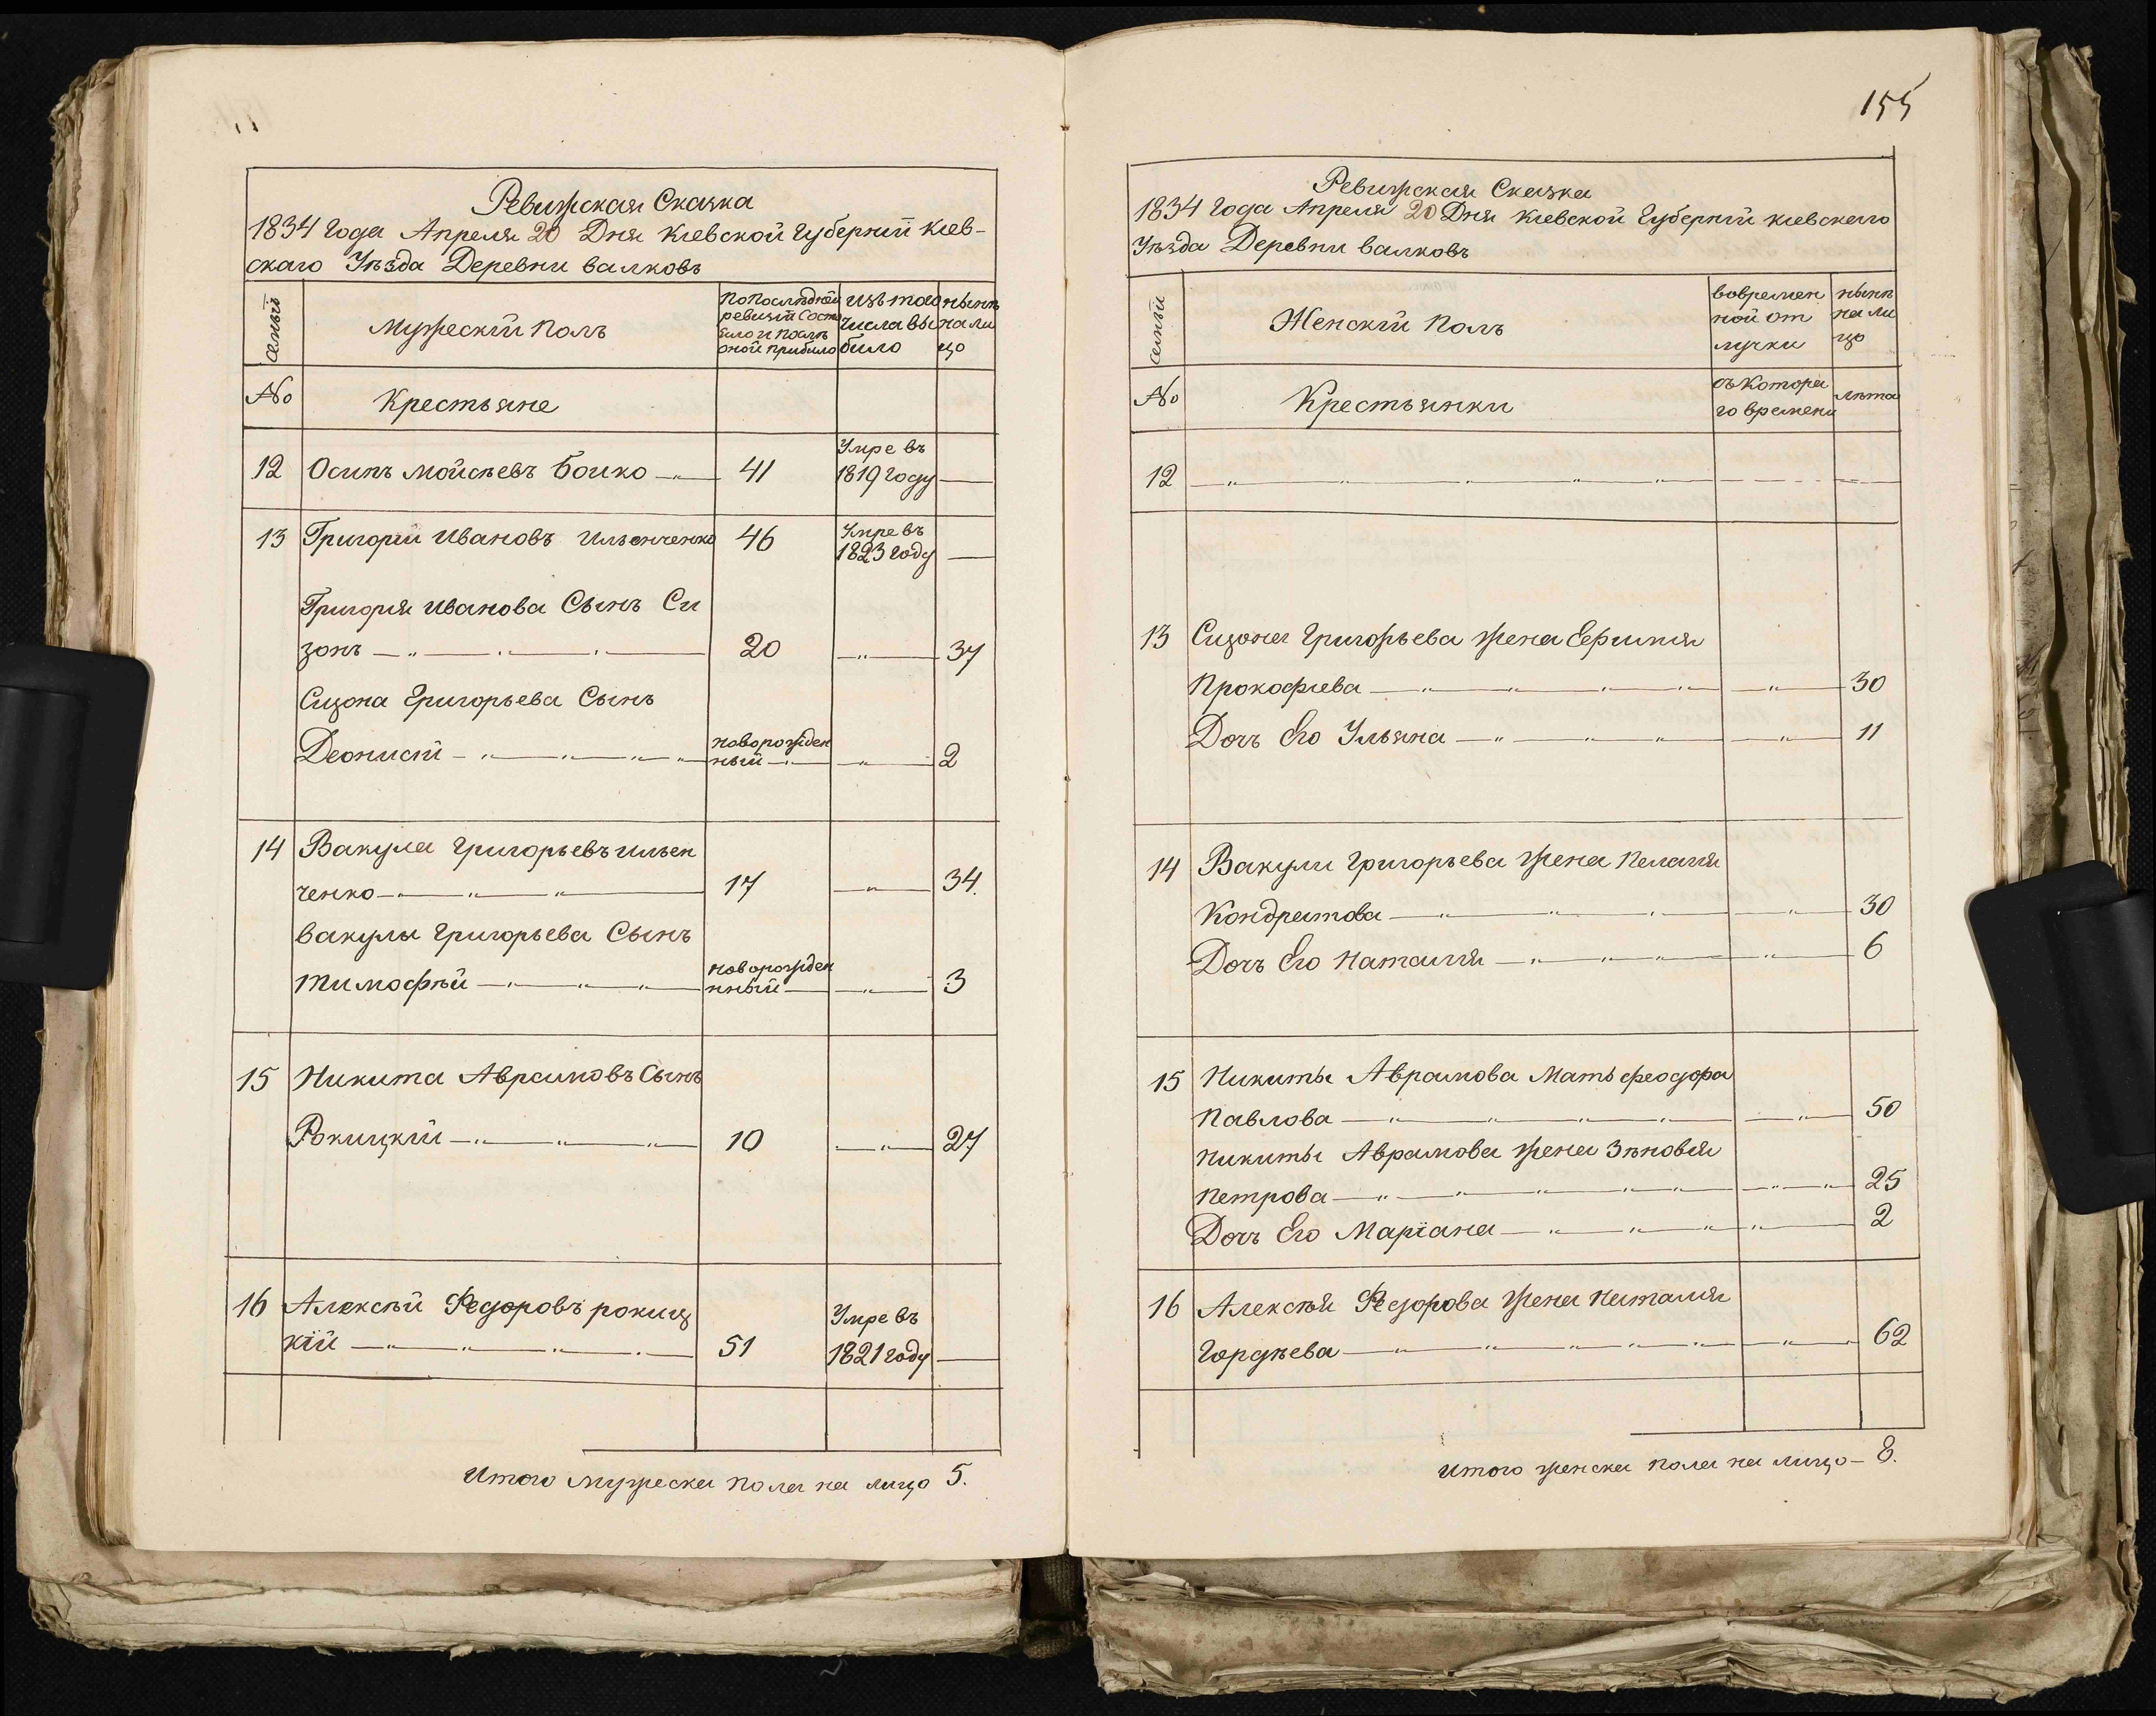 Ревижская Сказка
1834 Года Апреля 20 Дня Кіевской Губерніи Кіев-
скаго Уѣзда Деревни Валковъ
семьи
Мужескій Полъ
По Послѣдной
ревизіи Состо
яло и Послѣ
оной прибыло
изъ того
Числа вы
было
нынѣ
на ли
цо
№
Крестьяне
12 Осипъ Мойсѣевъ Бойко 41
Умре въ
1819 Году —
13 Григорій Ивановъ Ильенченко 46
Умре въ
1823 Году —
Григорія Иванова Сынъ Си
зонъ 20 — 37
Сизона Григорьева Сынъ
Деонисій
новорожден
ный — 2
14 Вакула Григорьевъ Ильен
ченко 17 — 34.
Вакулы Григорьева Сынъ
Тимофѣй
новорожден
нный — 3
15 Никита Аврамовъ Сынъ
Рокицкій 10 — 27
16 Алексѣй Федоровъ рокиц
кій 51
Умре въ
1821 году —
Итого Мужеска Пола на лицо 5.
155
Ревижская Сказка
1834 Года Апреля 20 Дня Кіевской Губерніи Кіевскаго
Уѣзда Деревни Валковъ
семьи
Женскій Полъ
вовремен
ной от
лучки
нынѣ
на ли
цо
№
Крестьянки
съ Котора
го времени
лѣта
12 —
13 Сизона Григорьева жена Ефимія
Прокофіева — 30
Дочъ Его Ульяна — 11
14 Вакули Григорьева жена Пелагія
Кондратова — 30
Дочъ Его Наталія — 6
15 Никиты Аврамова Мать Феодора
Павлова — 50
Никиты Аврамова жена Зѣновія
Петрова — 25
Дочъ Его Маріана — 2
16 Алексѣя Федорова жена Наталія
Гордѣева — 62
Итого женска пола на лицо — 8.